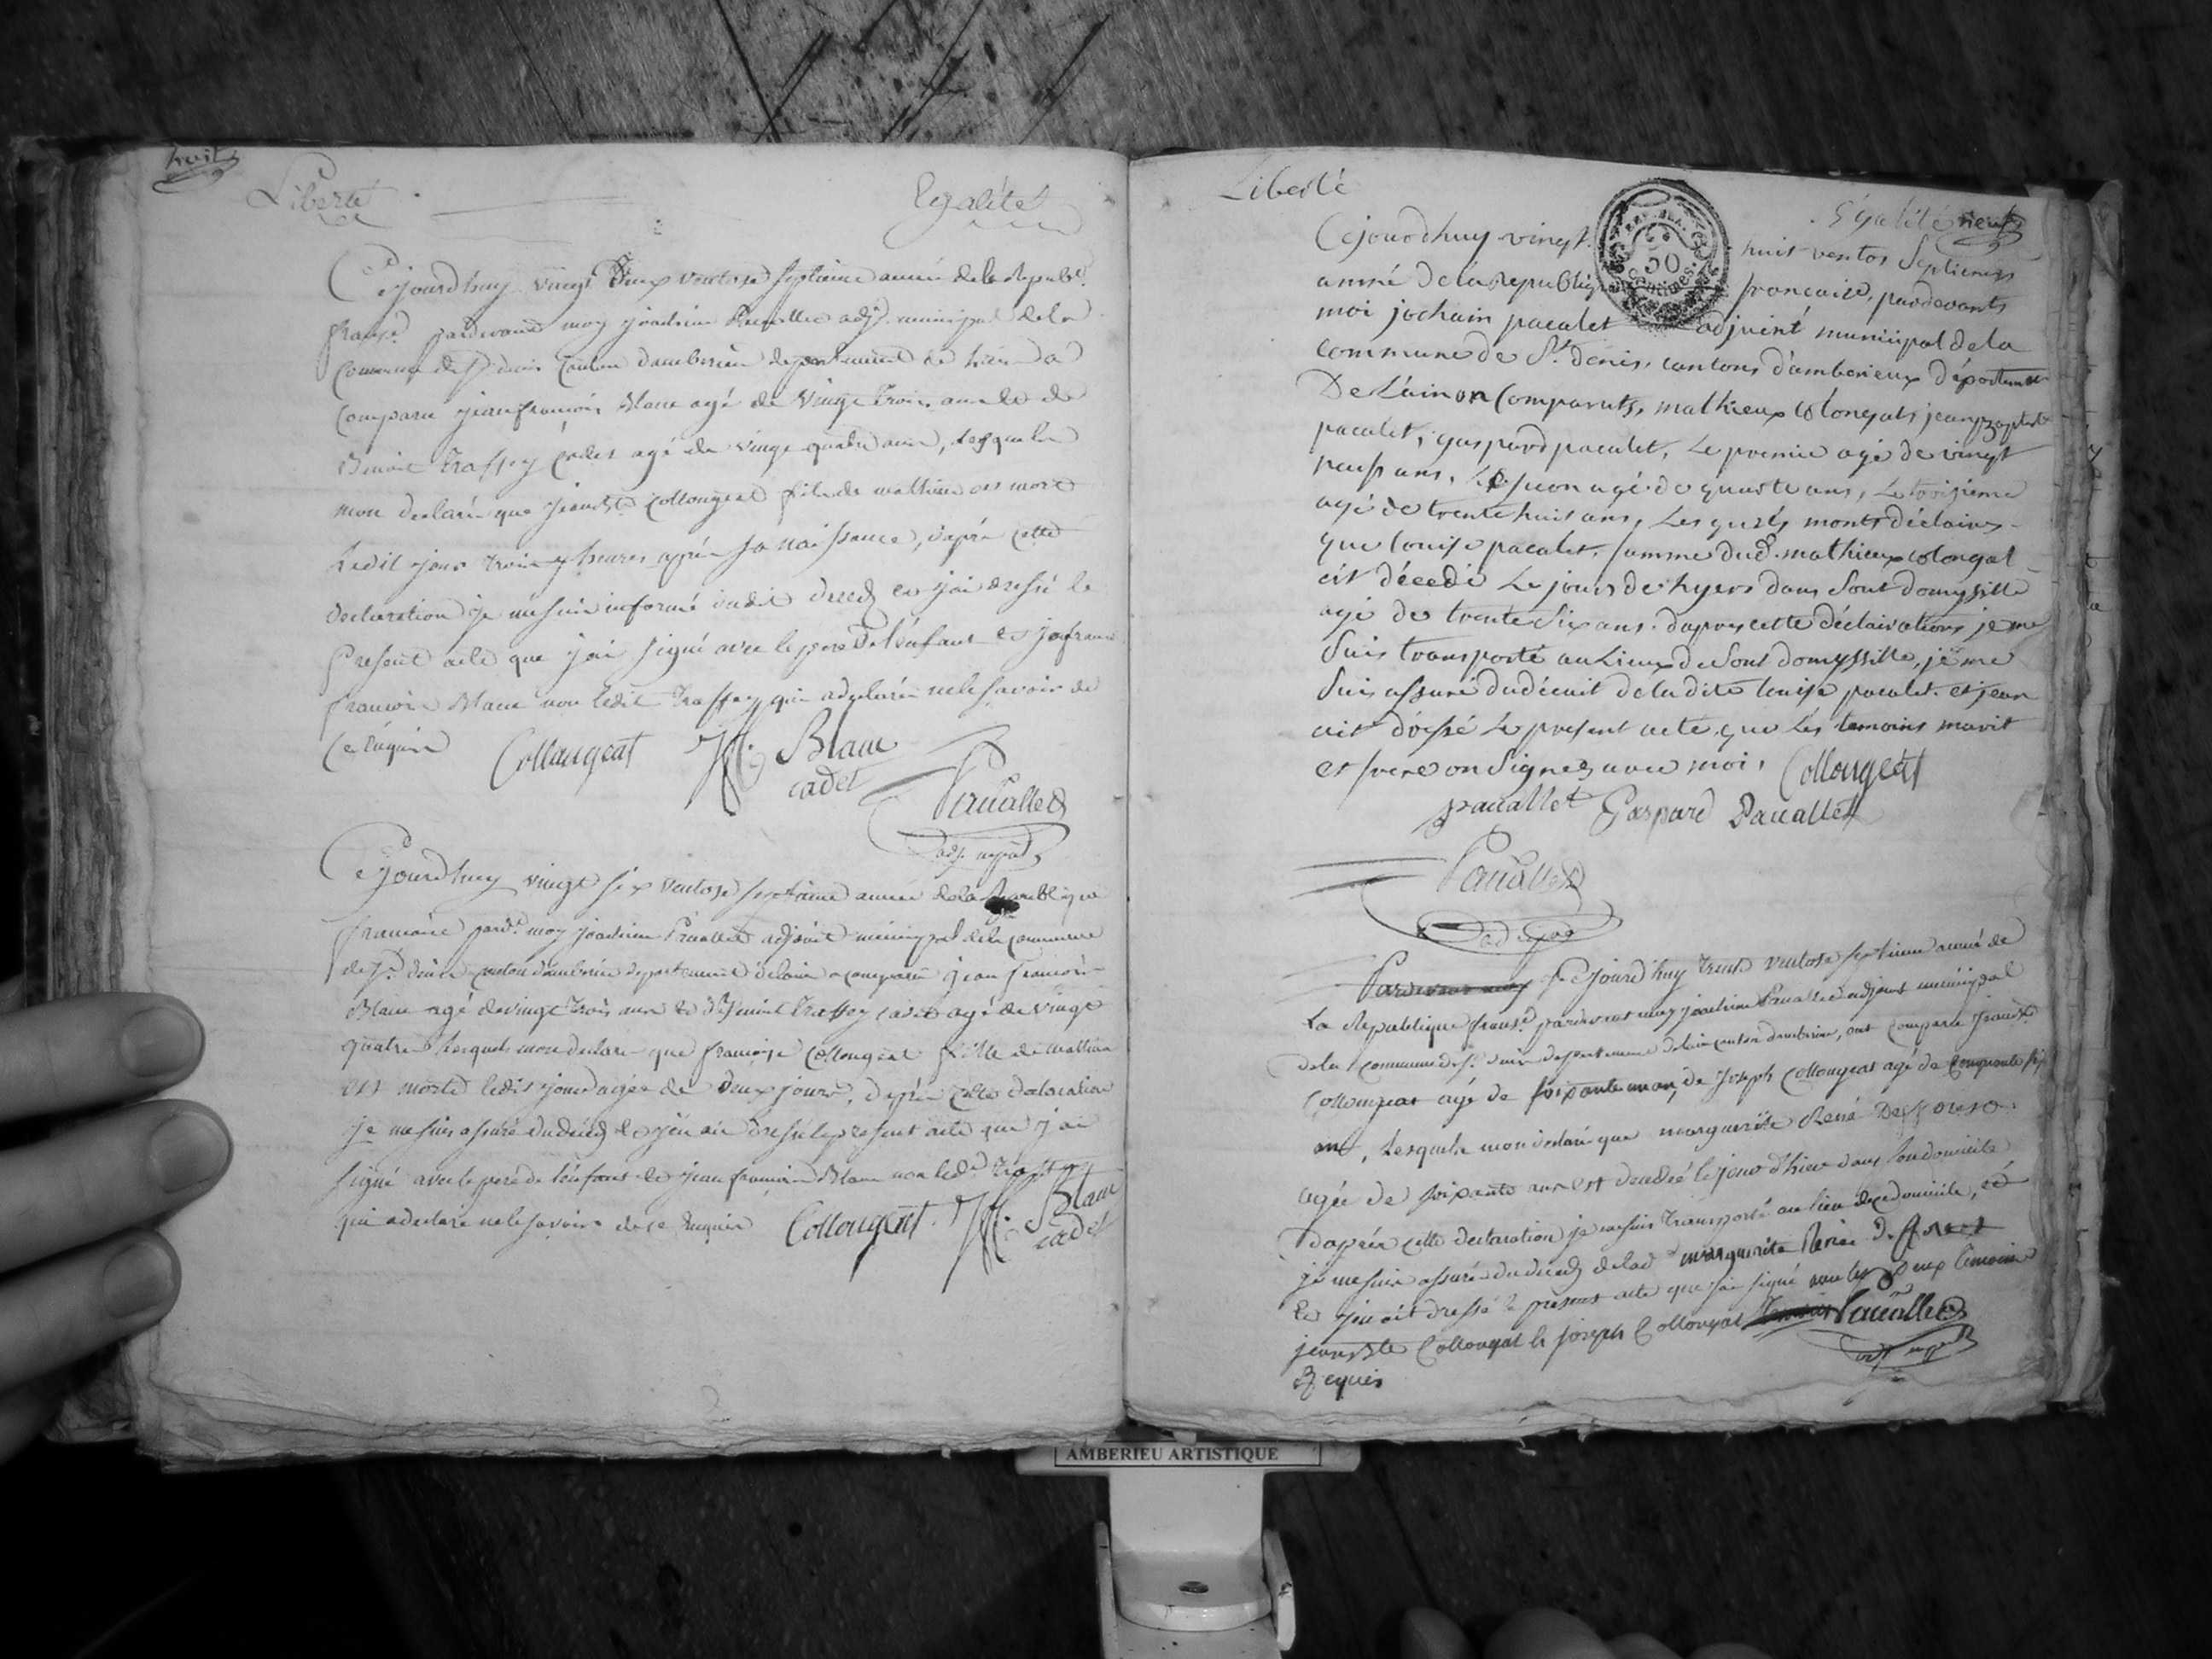 huit
Liberté
Egalité
Cejourdhuy vingt deux ventose septieme année de la Republ.
franse. pardevant moy joachim Pacallet adj. municipal de la
Commune de St. denis canton d'amberieu departement de l'ain a
comparu jean françois Blanc agé de vingt trois ans et de
Benoit Traffey cadet agé de vingt quatre ans, lesquels
mon declaré que jean Bte. Collongeat fils de mathieu est mort
ledit jour trois heures après sa naissance, d'après cette
declaration je me suis informé dudit deced et j'ai dressé le
present acte que j'ai signé avec le pere de l'enfant et jn français
françois Blanc non ledit Traffey qui a declaré ne le savoir de
ce requis Collongeat Jf. Blanc
cadet
Pacallet
adj. mpal
Cejourdhuy vingt six ventose septieme année de la Republique
francaise pard. moy joachim Pacallet adjoint municipal de la commune
de St. denis canton d'amberieu departement de l'ain a comparu jean françois
Blanc agé de vingt trois ans et Benoit Traffey cadet agé de vingt
quatre lesquels mon declaré que françoise Collongeat fille de mathieu
est morte ledit jour agée de deux jours, d'après cette declaration
je me suis assuré du deced et j'en ai dressé le present acte que j'ai
signé avec le pere de l'enfant et jean françois Blanc non led. Traffey
qui a declaré ne le savoir de ce requis Collongeat Jf. Blanc
cadet
Liberté
Egalité neuf
Cejourdhuy vingt huit ventos septiemes
année de la Republique française, pardevants
moi jochain pacalet adjoint municipal de la
commune de St. denis, cantons d'amberieux départemen
De L'ain on Comparuts, mathieux Colongats jean Baptiste
pacalet, gaspard pacalet, Le premie agé de vingt
neuf ans, Le segon agé de quarte ans, Le troisieme
agé de trente huit ans, Les quels monts déclaires
que louise pacalet, famme dud. mathieux colongat
ait décedé Le jours de hyers dans Sont domysille
agé de trente Six ans. daprés cette déclairations je me
Suis transporté au Lieux de Sont domyssille, je me
Suis assuré du décait de la dite louise pacalet. et jean
ait dréssé Le present acte que Les temoins marit
et frere on Signez avec moi, Collongeat
pacallet Gaspard Pacallet
Pacallet
Pardevant moy Cejourdhuy trente ventose septieme année de
La Republique franse. pardevant moy joachim Pacallet adjoint municipal
de la Commune de St. denis departement de l'ain canton d'amberieu, ont comparu jean Bte.
Collongeat agé de soixante un an, de Joseph Collongeat agé de Cinquante six
ans, Lesquels mon declaré que marguerite René Desforest
agée de soixante ans est decedée le jour d'hier dans son domicile
d'après cette declaration je me suis transporté au lieu de ce domicile, et
je me suis assuré du deced de lad. marguerite Renée d. forest
et j'en ait dressé le present acte que j'ai signé avec les deux temoins
jean Bte Collongat et joseph Collongat Pacallet
Requis
adj. mpal
AMBERIEU ARTISTIQUE